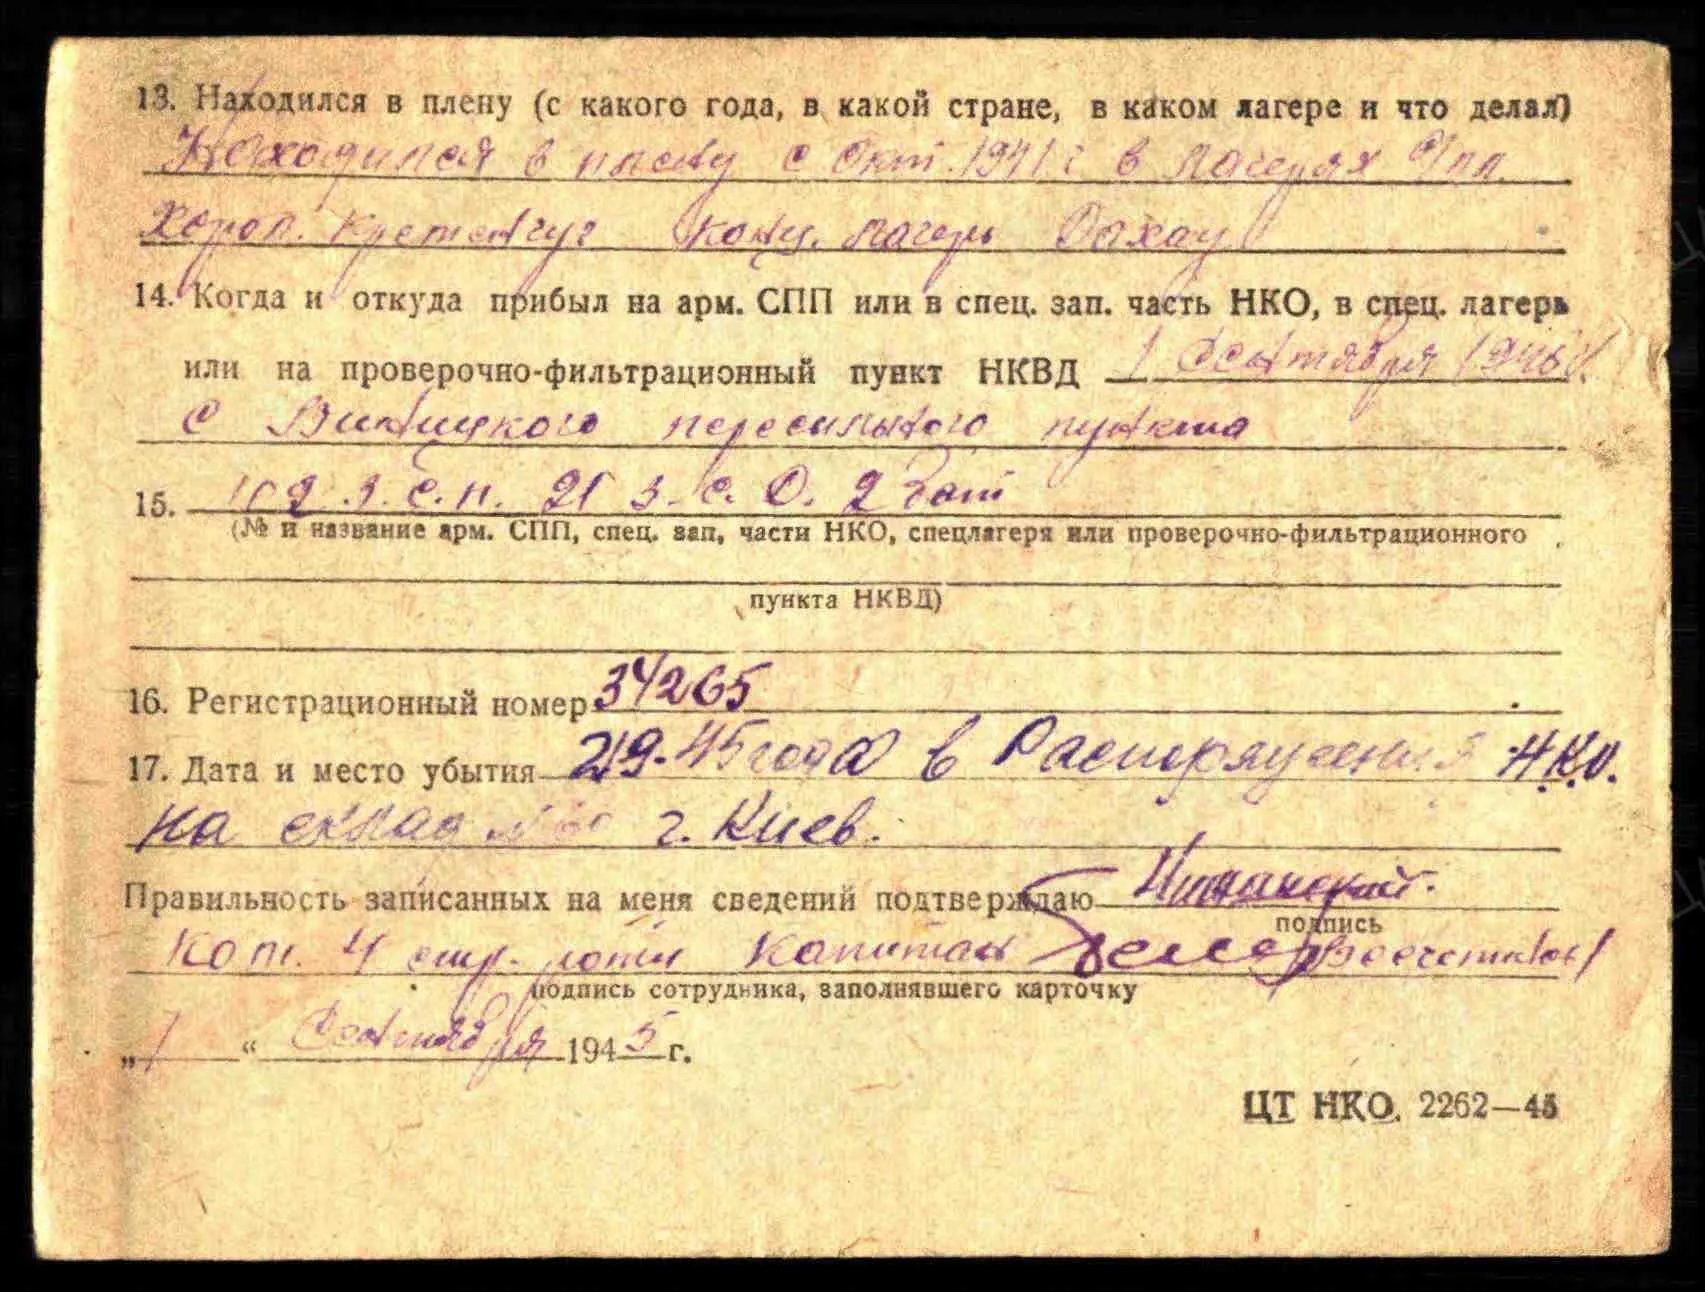 13. Находился в плену (с какого года, в какой стране, в каком лагере и что делал)
Находился в плену с окт. 1941 г в лагерях
Хорол. Кременчуг конц. лагерь Дахау
14. Когда и откуда прибыл на арм. СПП или в спец. зап. часть НКО, в спец. лагерь
или на проверочно-фильтрационный пункт НКВД 1 Сентября 1945 г.
с Винницкого пересыльного пункта
15. с.п. 21 з. с. д. 2 бат
(№ и название арм. СПП, спец. зап, части НКО, спецлагеря или проверочно-фильтрационного
пункта НКВД)
16. Регистрационный номер 34265
17. Дата и место убытия 45 года в Распоряжения НКО.
на склад г. Киев.
Правильность записанных на меня сведений подтверждаю
подпись
Ком. 4 стр. роты капитан
подпись сотрудника, заполнявшего карточку
„1“ Сентября 1945 г.
ЦТ НКО. 2262—45